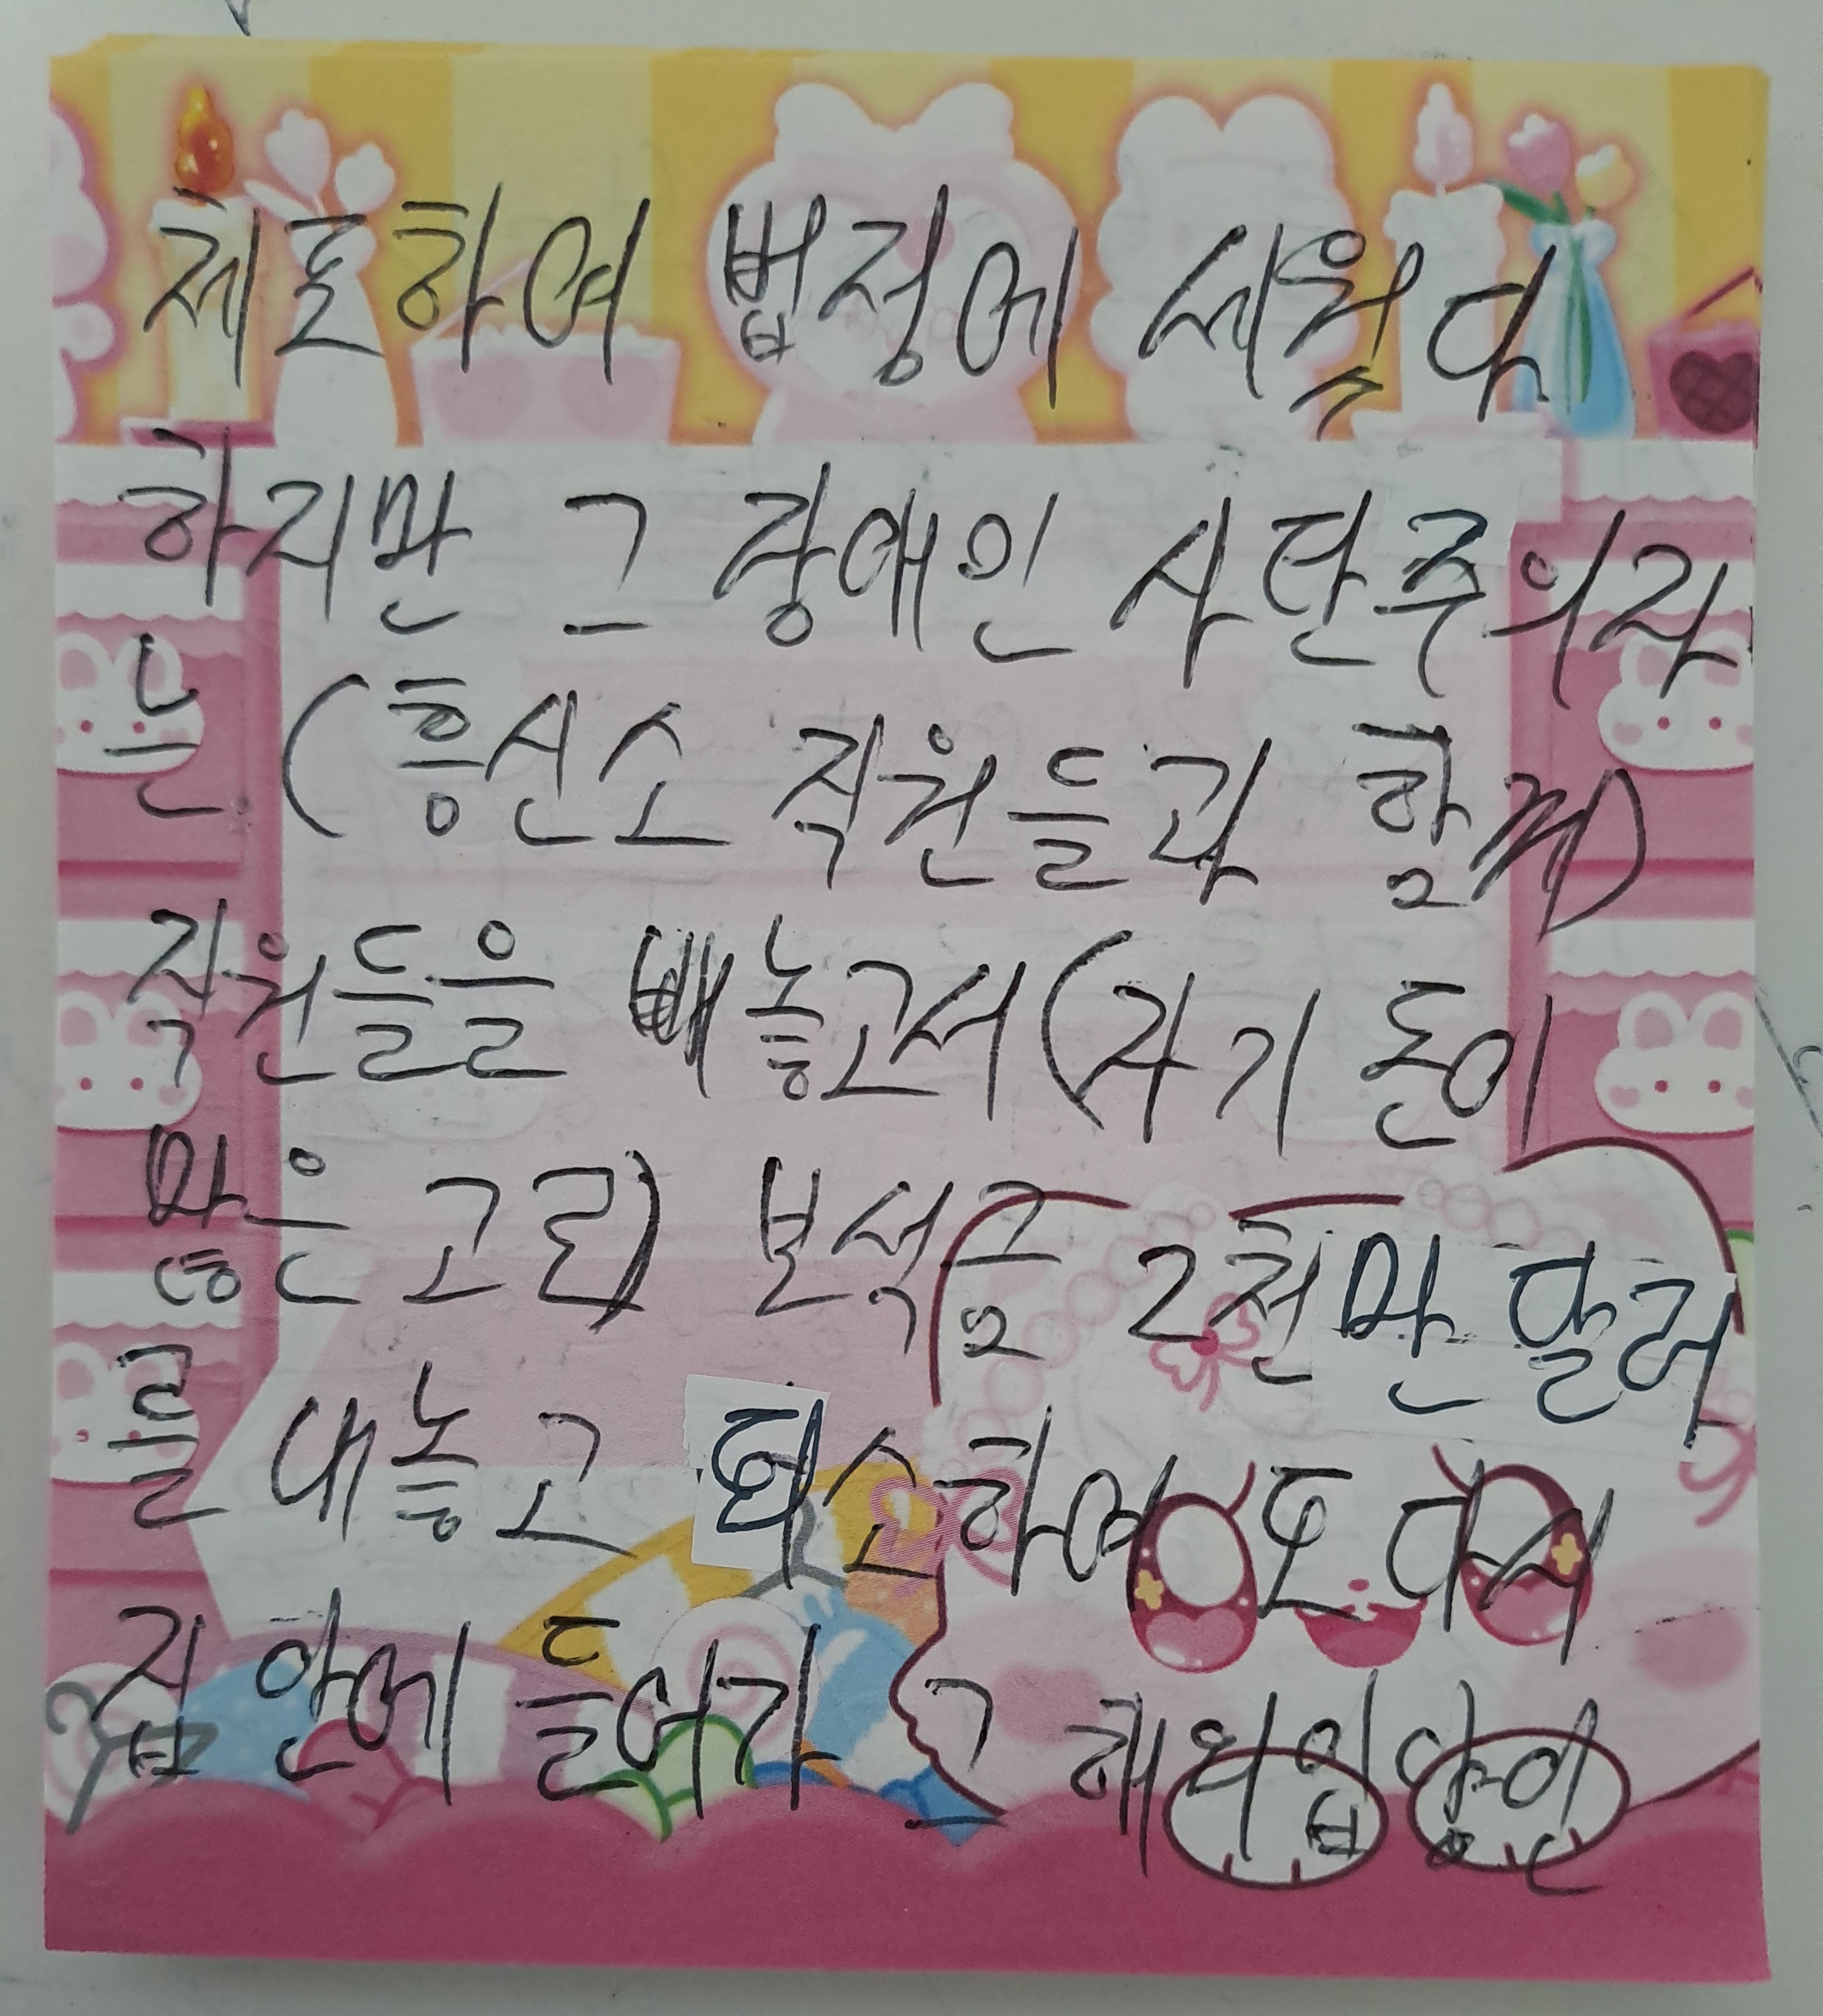 체포하여 법정에 세웠다
하지만 그 장애인 사탄주의자
는 (흥신소 직원들과 함께)
직원들을 빼놓고서 (자기 돈이
많은 고로) 보석금 2천만 달러
를 내놓고 협소하여 또다시
집 안에 들어가 그 해외입양인